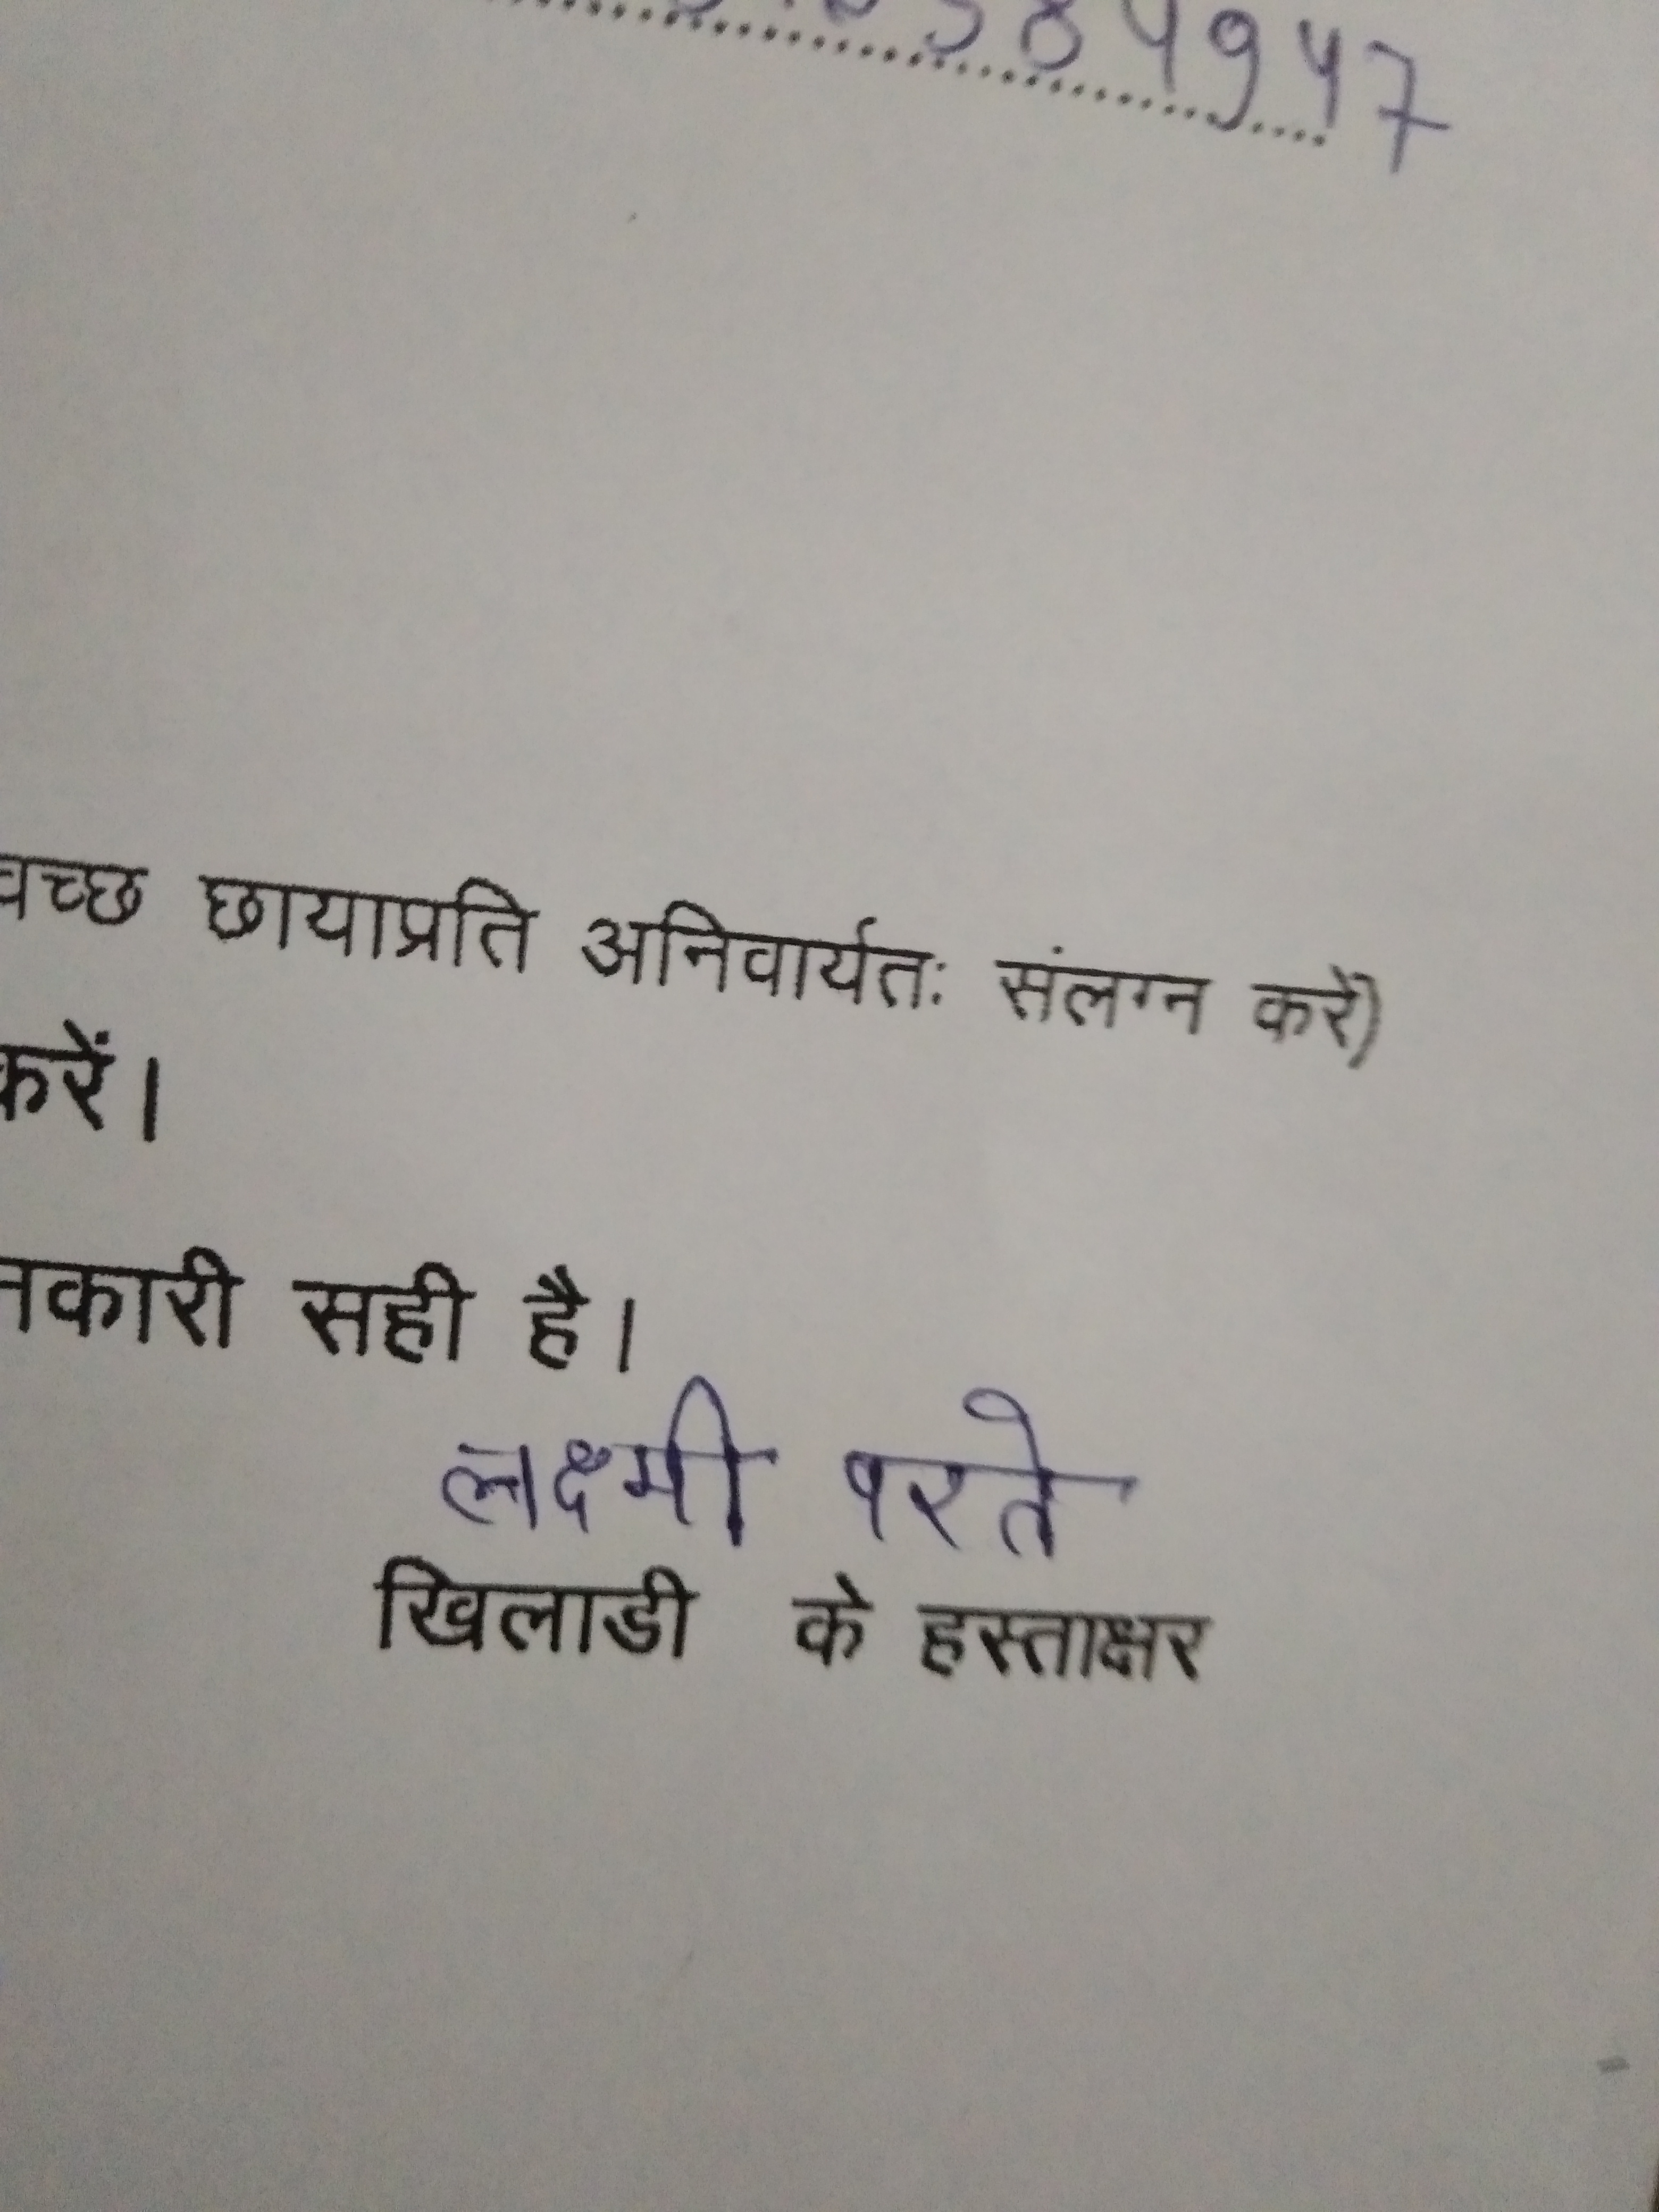 584947
वच्छ छायाप्रति अनिवार्यतः संलग्न करें)
करें।
नकारी सही है।
लक्ष्मी परते
खिलाडी के हस्ताक्षर